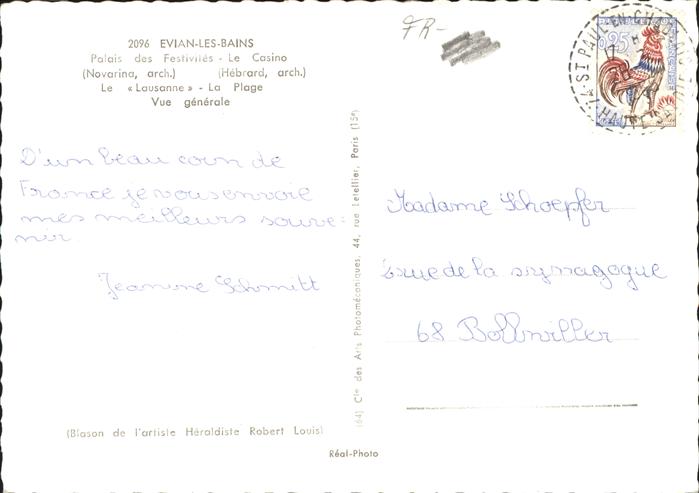 2096 EVIAN-LES-BAINS
Palais des Festivités - Le Casino
(Novarina, arch.) (Hébrard, arch.)
Le « Lausanne » - La Plage
Vue générale
FR-
D'un beau coin de
France je vous envoie
mes meilleurs souve-
nir.
Jeannine Schmitt
(Blason de l'artiste Héraldiste Robert Louis)
(64) Cie des Arts Photomécaniques, 44, rue Letellier, Paris (15e)
Réal-Photo
0,25
ST PAUL-EN-CHABLAIS
HAUTE SAVOIE
Madame Schoepfer
rue de la synagogue
68 Bollwiller